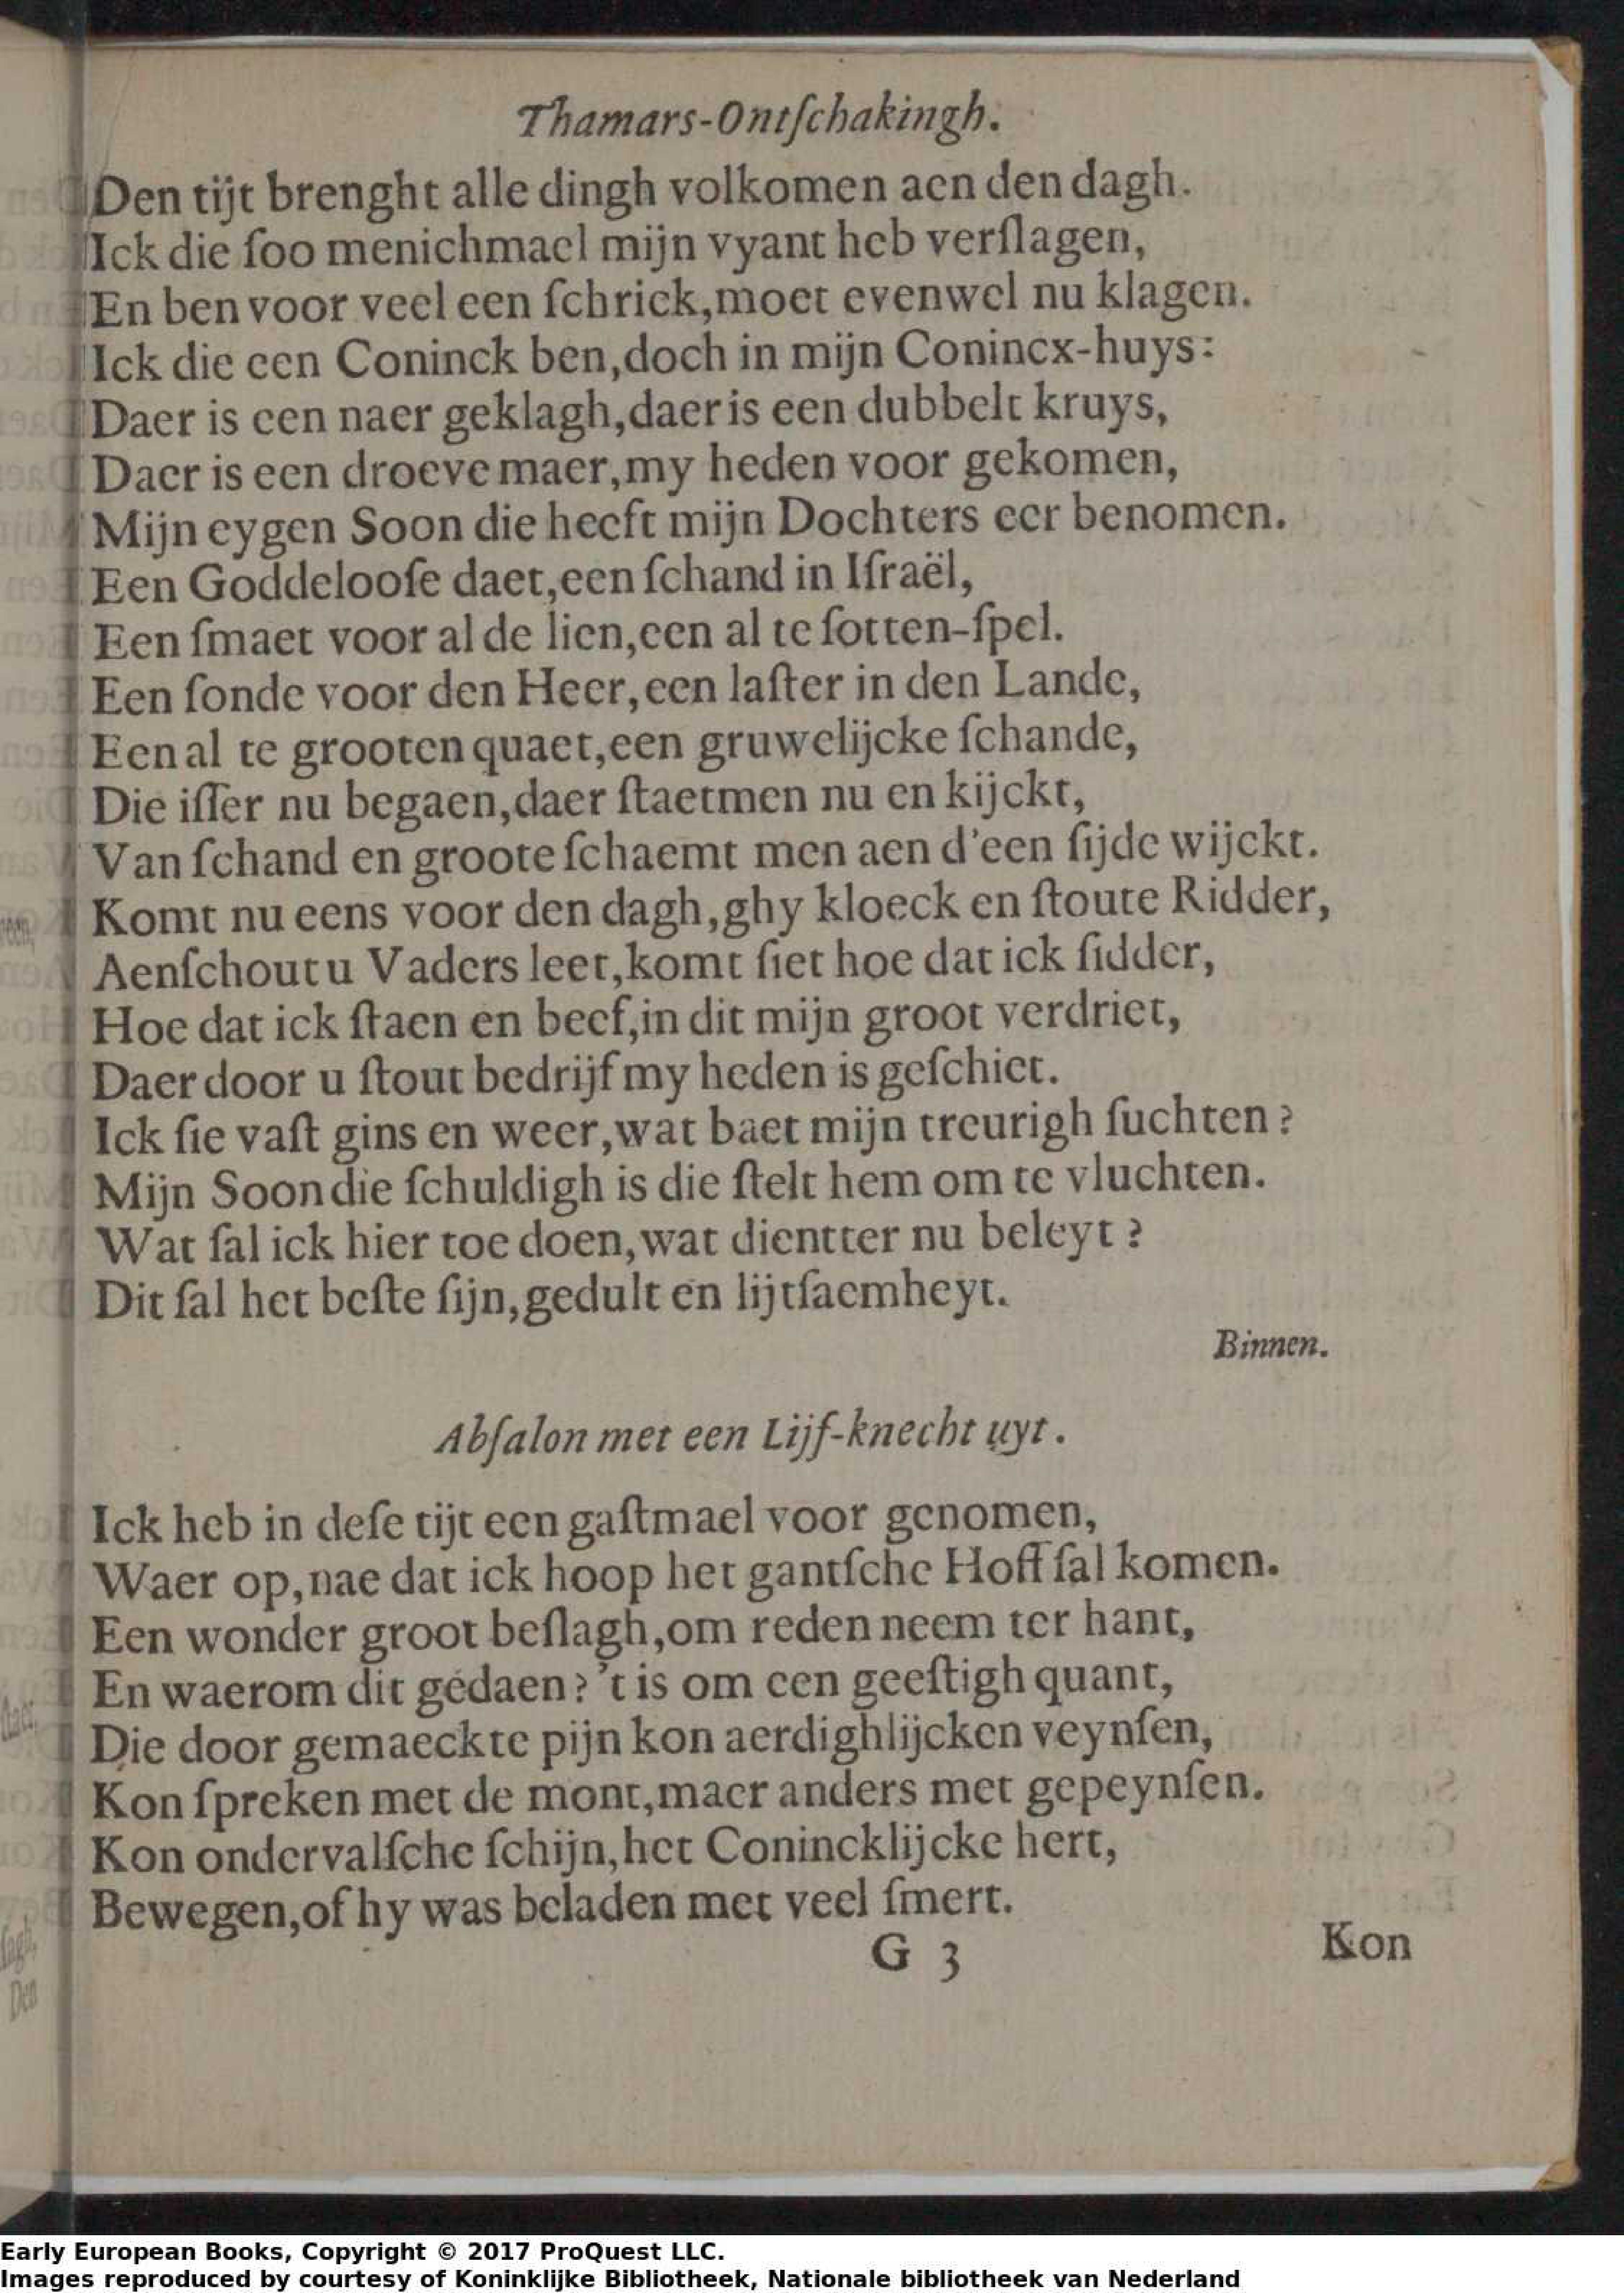 Thamars-Ontſchakingh.
Den tijt brenght alle dingh volkomen aen den dagh.
Ick die ſoo menichmael mijn vyant heb verſlagen,
En ben voor veel een ſchrick, moet evenwel nu klagen.
Ick die een Coninck ben, doch in mijn Conincx-huys:
Daer is een naer geklagh, daer is een dubbelt kruys,
Daer is een droeve maer, my heden voor gekomen,
Mijn eygen Soon die heeft mijn Dochters eer benomen.
Een Goddelooſe daet, een ſchand in Iſraël,
Een ſmaet voor al de lien, een al te ſotten-ſpel.
Een ſonde voor den Heer, een laſter in den Lande,
Een al te grooten quaet, een gruwelijcke ſchande,
Die iſſer nu begaen, daer ſtaetmen nu en kijckt,
Van ſchand en groote ſchaemt men aen d'een ſijde wijckt.
Komt nu eens voor den dagh, ghy kloeck en ſtoute Ridder,
Aenſchout u Vaders leet, komt ſiet hoe dat ick ſidder,
Hoe dat ick ſtaen en beef, in dit mijn groot verdriet,
Daer door u ſtout bedrijf my heden is geſchiet.
Ick ſie vaſt gins en weer, wat baet mijn treurigh ſuchten?
Mijn Soon die ſchuldigh is die ſtelt hem om te vluchten.
Wat ſal ick hier toe doen, wat dientter nu beleyt?
Dit ſal het beſte ſijn, gedult en lijtſaemheyt.
Binnen.
Abſalon met een Lijf-knecht uyt.
Ick heb in deſe tijt een gaſtmael voor genomen,
Waer op, nae dat ick hoop het gantſche Hoff ſal komen.
Een wonder groot beſlagh, om reden neem ter hant,
En waerom dit gedaen? 't is om een geeſtigh quant,
Die door gemaeckte pijn kon aerdighlijcken veynſen,
Kon ſpreken met de mont, maer anders met gepeynſen.
Kon onder valſche ſchijn, het Conincklijcke hert,
Bewegen, of hy was beladen met veel ſmert.
G 3
Kon
Early European Books, Copyright © 2017 ProQuest LLC.
Images reproduced by courtesy of Koninklijke Bibliotheek, Nationale bibliotheek van Nederland